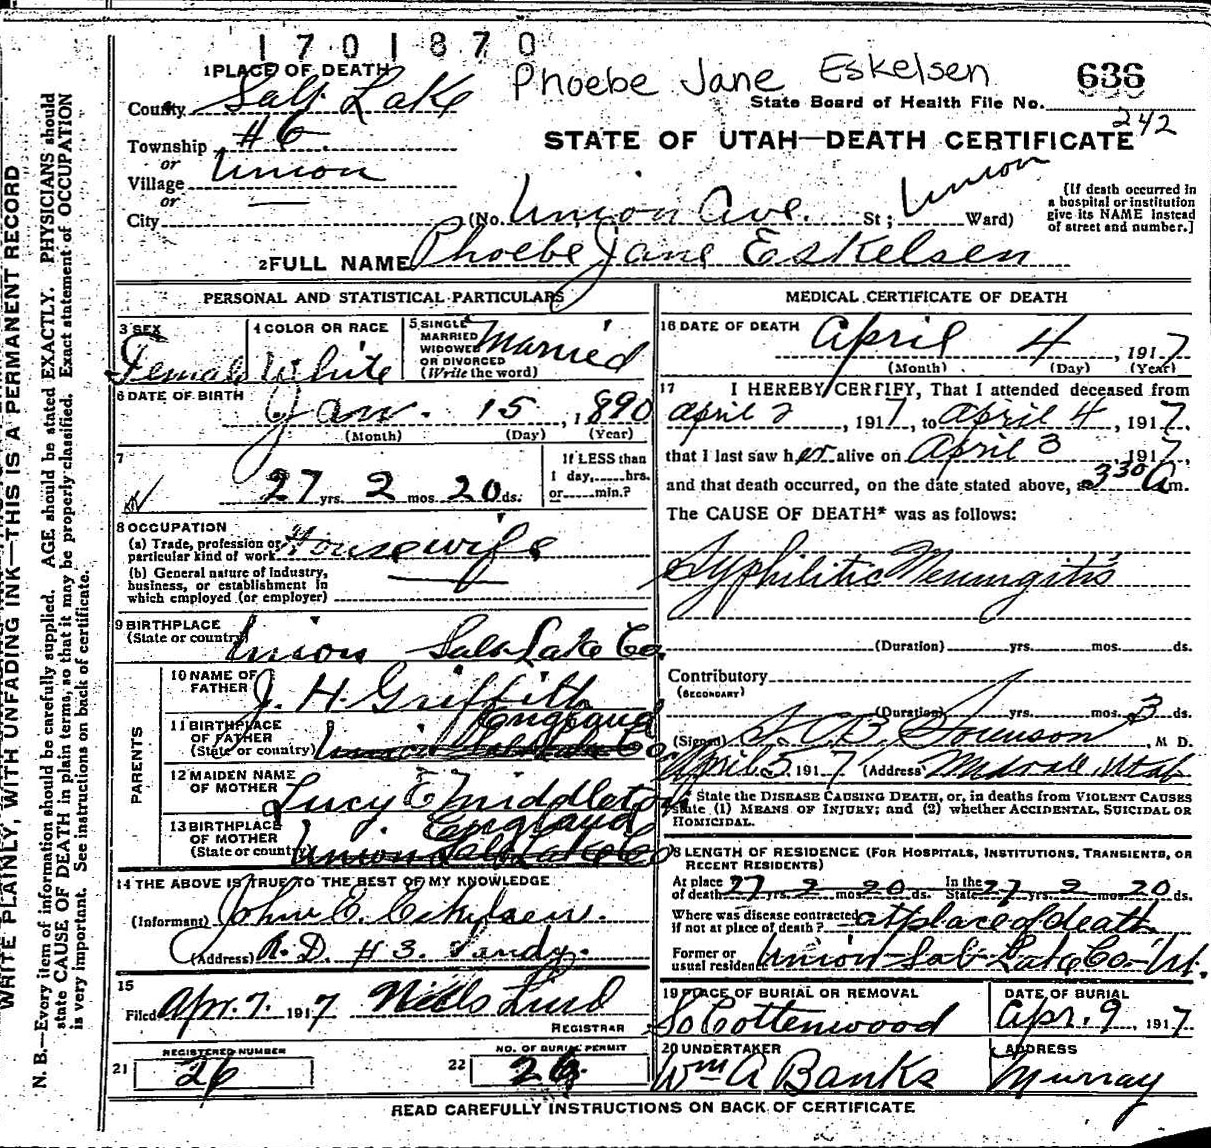 1701870
Phoebe Jane Eskelsen
636
1 PLACE OF DEATH
County Salt Lake
State Board of Health File No.
242
Township #6
or
Village Union
or
City —
STATE OF UTAH—DEATH CERTIFICATE
(No. Union Ave. St; Union Ward)
[If death occurred in
a hospital or institution
give its NAME instead
of street and number.]
2 FULL NAME Phoebe Jane Eskelsen
PERSONAL AND STATISTICAL PARTICULARS
3 SEX
Female
4 COLOR OR RACE
White
5 SINGLE
MARRIED
WIDOWED
OR DIVORCED
(Write the word)
Married
6 DATE OF BIRTH
Jan. 15, 1890
(Month) (Day) (Year)
7
27 yrs. 2 mos. 20 ds.
If LESS than
1 day,......hrs.
or......min.?
8 OCCUPATION
(a) Trade, profession or
particular kind of work Housewife
(b) General nature of industry,
business, or establishment in
which employed (or employer)
9 BIRTHPLACE
(State or country)
Union Salt Lake Co.
PARENTS
10 NAME OF
FATHER
J. H. Griffith
11 BIRTHPLACE
OF FATHER
(State or country)
England
Union Salt Lake Co
12 MAIDEN NAME
OF MOTHER
Lucy E Middleton
13 BIRTHPLACE
OF MOTHER
(State or country)
England
Union Salt Lake Co
14 THE ABOVE IS TRUE TO THE BEST OF MY KNOWLEDGE
(Informant) John E. Eskelsen.
(Address) R. D. #3. Sandy.
15
Filed Apr. 7. 1917 Niels Lind
REGISTRAR
21 REGISTERED NUMBER
26
22 NO. OF BURIAL PERMIT
26
MEDICAL CERTIFICATE OF DEATH
16 DATE OF DEATH
April 4, 1917
(Month) (Day) (Year)
17 I HEREBY CERTIFY, That I attended deceased from
april 2, 1917, to april 4, 1917,
that I last saw her alive on April 3, 1917,
and that death occurred, on the date stated above, at 3 30 A m.
The CAUSE OF DEATH* was as follows:
Syphilitic Meningitis
(Duration) yrs. mos. ds.
Contributory
(SECONDARY)
(Duration) yrs. mos. 3 ds.
(Signed) Sorenson, M D.
April 5, 1917 (Address) Midvale Utah
* State the DISEASE CAUSING DEATH, or, in deaths from VIOLENT CAUSES
state (1) MEANS OF INJURY; and (2) whether ACCIDENTAL, SUICIDAL OR
HOMICIDAL.
18 LENGTH OF RESIDENCE (FOR HOSPITALS, INSTITUTIONS, TRANSIENTS, OR
RECENT RESIDENTS)
At place
of death 27 yrs. 2 mos. 20 ds. In the
State 27 yrs. 2 mos. 20 ds.
Where was disease contracted
if not at place of death? at place of death
Former or
usual residence Union Salt Lake Co. Ut.
19 PLACE OF BURIAL OR REMOVAL
So Cottenwood
DATE OF BURIAL
Apr. 9, 1917
20 UNDERTAKER
Wm A Banks
ADDRESS
Murray
READ CAREFULLY INSTRUCTIONS ON BACK OF CERTIFICATE
WRITE PLAINLY, WITH UNFADING INK—THIS IS A PERMANENT RECORD
N. B.—Every item of information should be carefully supplied. AGE should be stated EXACTLY. PHYSICIANS should
state CAUSE OF DEATH in plain terms, so that it may be properly classified. Exact statement of OCCUPATION
is very important. See instructions on back of certificate.